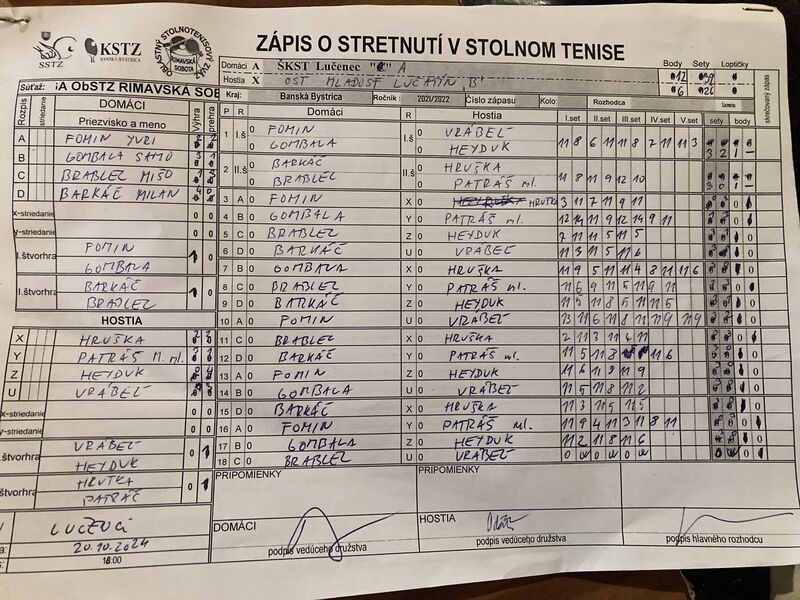 SSTZ
KSTZ
BANSKÁ BYSTRICA
OBLASTNÝ STOLNOTENISOVÝ ZVÄZ
RIMAVSKÁ SOBOTA
ZÁPIS O STRETNUTÍ V STOLNOM TENISE
Domáci A ŠKST Lučenec "A
Hostia X OŠT MLADOSŤ LUČATÍN „B"
Body Sety Loptičky
12
6
Súťaž: SA ObSTZ RIMAVSKÁ SOB
Kraj: Banská Bystrica Ročník : 2021/2022 Číslo zápasu Kolo: Rozhodca
skrečovaný zápas
Rozpis striedanie DOMÁCI Priezvisko a meno Výhra prehra
P R Domáci R Hostia I.set II.set III.set IV.set V.set sety body
A FOMIN YURI
B GOMBALA SAMO 3 1
C BRABLEC MIŠO
D BARKÁČ MILAN 4 0
X-striedanie 0 0
y-striedanie 0 0
I.štvorhra FOMIN GOMBALA 1 0
II.štvorhra BARKÁČ BRABLEC 1 0
HOSTIA
X HRUŠKA
Y PATRÁŠ M. ml.
Z HEYDUK
U VRÁBEĽ
X-striedanie 0 0
y-striedanie 0 0
I.štvorhra VRÁBEĽ HEYDUK 0 1
II.štvorhra HRUŠKA PATRÁŠ 0 1
LUČENEC
20.10.2024
18:00
1 I.š 0 FOMIN 0 GOMBALA I.š 0 VRÁBEĽ 0 HEYDUK 11 8 6 11 11 8 7 11 11 3 3 2 1 –
2 II.š 0 BARKÁČ 0 BRABLEC II.š 0 HRUŠKA 0 PATRÁŠ ml. 11 8 11 9 12 10 3 0 1 –
3 A 0 FOMIN X HRUŠKA 3 11 7 11 9 11
4 B 0 GOMBALA Y 0 PATRÁŠ ml. 12 14 11 9 12 14 9 11
5 C 0 BRABLEC Z 0 HEYDUK 7 11 11 5 11 5
6 D 0 BARKÁČ U 0 VRÁBEĽ 11 3 11 5 11 6
7 B 0 GOMBALA X 0 HRUŠKA 11 9 5 11 11 4 8 11 11 6
8 C 0 BRABLEC Y 0 PATRÁŠ ml. 11 6 9 11 5 11 9 11
9 D 0 BARKÁČ Z 0 HEYDUK 11 5 11 8 5 11 11 5
10 A 0 FOMIN U 0 VRÁBEĽ 13 11 6 11 8 11 11 9 11 9
11 C 0 BRABLEC X 0 HRUŠKA 2 11 3 11 4 11
12 D 0 BARKÁČ Y 0 PATRÁŠ ml. 11 5 11 8 11 6
13 A 0 FOMIN Z 0 HEYDUK 11 6 11 8 11 9
14 B 0 GOMBALA U 0 VRÁBEĽ 11 5 11 8 11 2
15 D 0 BARKÁČ X 0 HRUŠKA 11 3 11 5 11 5
16 A 0 FOMIN Y 0 PATRÁŠ ml. 11 9 4 11 3 11 8 11
17 B 0 GOMBALA Z 0 HEYDUK 11 2 11 8 11 6
18 C 0 BRABLEC U 0 VRÁBEĽ 0 w 0 w 0 w
PRIPOMIENKY PRIPOMIENKY
DOMÁCI HOSTIA
podpis vedúceho družstva podpis vedúceho družstva podpis hlavného rozhodcu